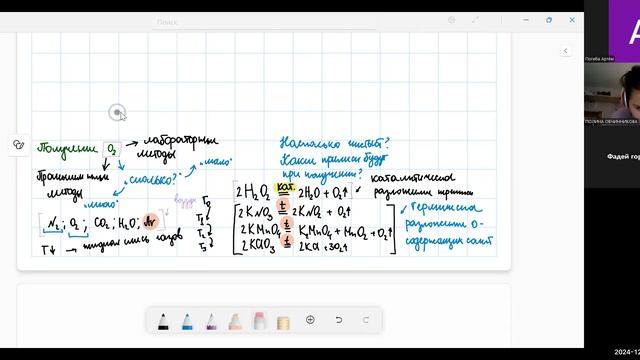 Поиск
Получение O₂ → лабораторные методы
Промышленные методы
"сколько?"
"мало"
"много"
N₂; O₂; CO₂; H₂O; Ar
воздух
T₀
T₁
T₂
T₃
T↓ → жидкая смесь газов
Насколько чистый?
Какие примеси будут
при получении?
2H₂O₂ кат. = 2H₂O + O₂↑
каталитическое
разложение
2KNO₃ t = 2KNO₂ + O₂↑
2KMnO₄ t = K₂MnO₄ + MnO₂ + O₂↑
2KClO₃ t = 2KCl + 3O₂↑
термическое
разложение O-
содержащих солей
Погеба Артём
ПОЛИНА ОВЧИННИКОВА
Фадей гор
2024-12